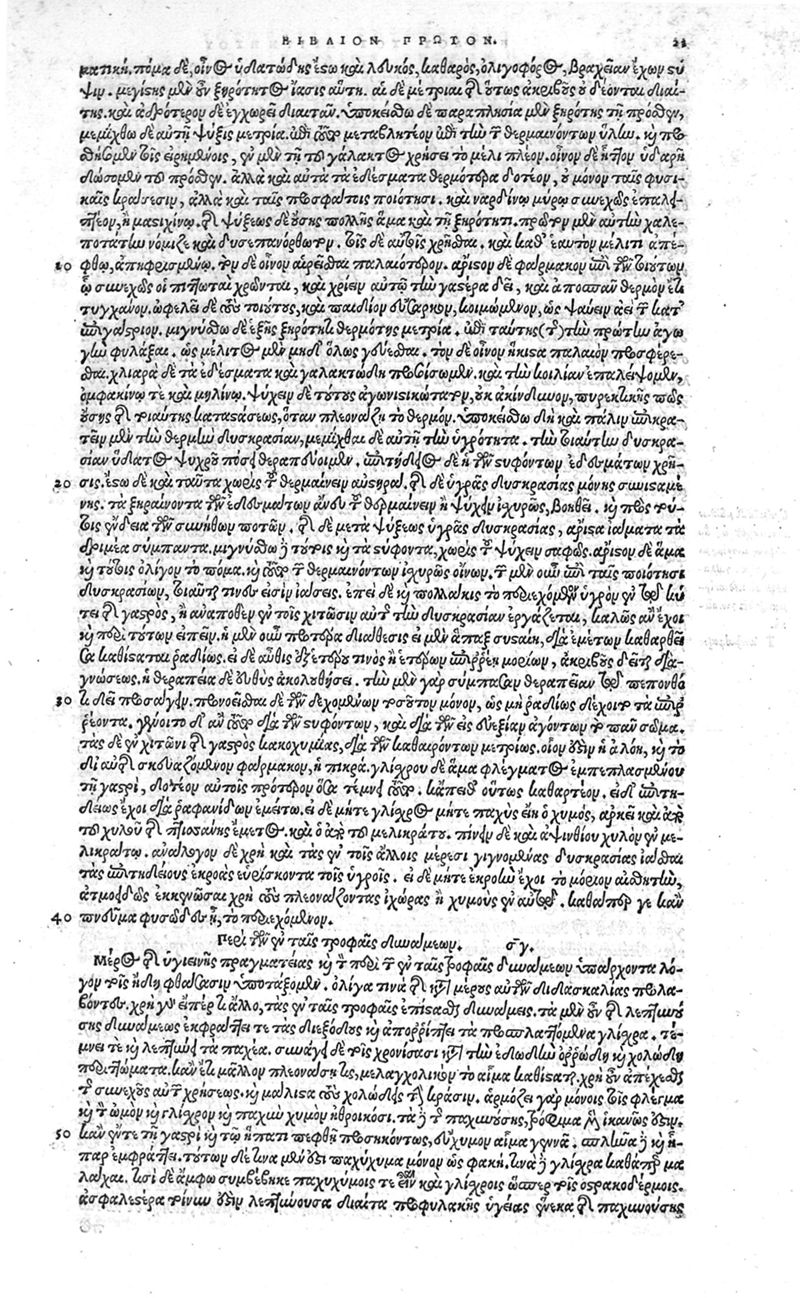 ΒΙΒΛΙΟΝ ΠΡΩΤΟΝ. 22
ματική. πόμα δὲ, οἶνος ὑδατώδης ἔστω καὶ λευκὸς, καθαρὸς, ὀλιγοφόρος, βραχεῖαν ἔχων στύ-
ψιν. μεγίστης μὲν οὖν ξηρότητος ἴασις αὕτη. αἱ δὲ μέτριαι οὕτως ἀκριβοῦς οὐ δέονται διαί-
της. καὶ ἁδρότερον δὲ ἐγχωρεῖ διαιτᾶν. ὑποκείσθω δὲ παραπλησία μὲν ξηρότης τῇ πρόσθεν,
μεμίχθω δὲ αὐτῇ ψύξις μετρία. ἐπὶ μεταβλητέον ἐπὶ τὴν τῶν θερμαινόντων ὕλην. καὶ προσ-
θήσομεν τοῖς εἰρημένοις, ἐν μὲν τῇ τοῦ γάλακτος χρήσει τὸ μέλι πλέον. οἶνον δὲ ἧττον ὑδαρῆ
δώσομεν τοῦ πρόσθεν. ἀλλὰ καὶ αὐτὰ τὰ ἐδέσματα θερμότερα δοτέον, οὐ μόνον ταῖς φυσι-
καῖς κράσεσιν, ἀλλὰ καὶ ταῖς προσφάτοις ποιότησι. καὶ ναρδίνῳ μύρῳ συνεχῶς ἐπαλει-
πτέον, ἢ μαστιχίνῳ. τῆς ψύξεως δὲ οὔσης πολλῆς ἅμα καὶ τῇ ξηρότητι. πρῶτον μὲν αὐτὴν χαλε-
πωτάτην νόμιζε καὶ δυσεπανόρθωτον. τοῖς δὲ αὐτοῖς χρῆσθαι. καὶ καθ' ἑαυτὸν μέλιτι ἀπέ-
10 φθῳ, ἀπηφρισμένῳ. τὸν δὲ οἶνον αἱρεῖσθαι παλαιότερον. ἄριστον δὲ φάρμακον ἐπὶ τῶν τοιούτων
ᾧ συνεχῶς οἱ πιττωταὶ χρῶνται, καὶ χρίειν αὐτῷ τὴν γαστέρα δεῖ, καὶ ἀποσπᾶν θερμὸν ἔτι
τυγχάνον. ὠφελεῖ δὲ τοὺς τοιούτους, καὶ παιδίον εὔσαρκον, κοιμώμενον, ὡς ψαύειν ἀεὶ τοῦ κατ'
ἐπιγάστριον. μιγνύσθω δὲ ἑξῆς ξηρότητι θερμότης μετρία. ἐπὶ ταύτης τὴν πρώτην ἀγω-
γὴν φυλάξαι. ὡς μέλιτος μὲν μηδ' ὅλως γεύεσθαι. τὸν δὲ οἶνον ἥκιστα παλαιὸν προσφέρε-
σθαι. χλιαρὰ δὲ τὰ ἐδέσματα καὶ γαλακτώδη ποριούμεν. καὶ τὴν κοιλίαν ἐπαλείψομεν,
ὀμφακίνῳ τε καὶ μηλίνῳ. ψύχειν δὲ τούτους ἀγωνιστικώτερον, οὐκ ἀκίνδυνον, πυρεκτικῆς πως
οὔσης τῆς τοιαύτης καταστάσεως, ὅταν πλεονάζῃ τὸ θερμόν. ὑποκείσθω δὴ καὶ πάλιν ἐπικρα-
τεῖν μὲν τὴν θερμὴν δυσκρασίαν, μεμίχθαι δὲ αὐτῇ τὴν ὑγρότητα. τὴν τοιαύτην δυσκρα-
σίαν ὕδατος ψυχροῦ πόσει θεραπεύσομεν. ἐπιτήδειος δὲ ἡ τῶν στυφόντων ἐδεσμάτων χρῆ-
20 σις. ἔστω δὲ καὶ ταῦτα χωρὶς τοῦ θερμαίνειν αὐστηρά. τῆς δὲ ὑγρᾶς δυσκρασίας μόνης συνισταμέ-
νης. τὰ ξηραίνοντα τῶν ἐδεσμάτων ἄνευ τοῦ θερμαίνειν ἢ ψύχειν ἰσχυρῶς, βοηθεῖ. καὶ πρὸς τού-
τοις ἔνδεια τῶν συνήθων ποτῶν. τῆς δὲ μετὰ ψύξεως ὑγρᾶς δυσκρασίας, ἄριστα ἰάματα τὰ
δριμέα σύμπαντα. μιγνύσθω δὲ τούτοις καὶ τὰ στύφοντα, χωρὶς τοῦ ψύχειν σαφῶς. ἄριστον δὲ ἅμα
καὶ τούτοις ὀλίγον τὸ πόμα. καὶ τῶν θερμαινόντων ἰσχυρῶς οἴνων. τῶν μὲν οὖν ἐπὶ ταῖς ποιότησι
δυσκρασίων, τοιαῦταί τινες εἰσὶν ἰάσεις. ἐπεὶ δὲ καὶ πολλάκις τὸ περιεχόμενον ὑγρὸν ἐν τῷ κύ-
τει τῆς γαστρὸς, ἢ ἀναποθὲν ἐν τοῖς χιτῶσιν αὐτῆς τὴν δυσκρασίαν ἐργάζεται, καλῶς ἂν ἔχοι
καὶ περὶ τούτων εἰπεῖν. ἡ μὲν οὖν προτέρα διάθεσις εἰ μὲν ἅπαξ συσταίη, δι' ἐμέτων καθαρθεῖ-
σα καθίσταται ῥᾳδίως. εἰ δὲ αὖθις ἐξ ἑτέρου τινὸς ἢ ἑτέρων ἐπιρρέῃ μορίων, ἀκριβοῦς δεῖται δια-
γνώσεως. ἡ θεραπεία δὲ εὐθὺς ἀκολουθήσει. τὴν μὲν γὰρ σύμπασαν θεραπείαν τῷ πεπονθό-
30 τι δεῖ προσάγειν. προνοεῖσθαι δὲ τῶν δεχομένων τοσοῦτον μόνον, ὡς μὴ ῥᾳδίως δέχοιτο τὰ ἐπιρ-
ρέοντα. γένοιτο δ' ἂν τοῦτο διὰ τῶν στυφόντων, καὶ διὰ τῶν εἰς εὐεξίαν ἀγόντων τὸ πᾶν σῶμα.
τὰς δὲ ἐν χιτῶνι τῆς γαστρὸς κακοχυμίας, διὰ τῶν καθαιρόντων μετρίως. οἷόν ἐστιν ἡ ἀλόη, καὶ τὸ
δι' αὐτῆς σκευαζόμενον φάρμακον, ἡ πικρά. γλίσχρου δὲ ἅμα φλέγματος ἐμπεπλασμένου
τῇ γαστρὶ, δοτέον αὐτοῖς πρότερον ὅσα τέμνει κἄπειθ' οὕτως καθαρτέον. εἰ δ' ἐπιτη-
δείως ἔχοι διὰ ῥαφανίδων ἐμείτω. εἰ δὲ μήτε γλίσχρος μήτε παχὺς εἴη ὁ χυμὸς, ἀρκεῖ καὶ ἀπὸ
τοῦ χυλοῦ τῆς πτισάνης ἔμετος. καὶ ὁ ἀπὸ τοῦ μελικράτου. πίνειν δὲ καὶ ἀψινθίου χυλὸν ἐν με-
λικράτῳ. ἀνάλογον δὲ χρὴ καὶ τὰς ἐν τοῖς ἄλλοις μέρεσι γιγνομένας δυσκρασίας ἰᾶσθαι
τὰς ἐπιτηδείους ἐκροὰς εὑρίσκοντα τοῖς ὑγροῖς. εἰ δὲ μήτε ἐκροὴν ἔχοι τὸ μόριον αἰσθητὴν,
ἀτμοειδῶς ἐκκενῶσαι χρὴ τοὺς πλεονάζοντας ἰχῶρας ἢ χυμοὺς ἐν αὐτῷ. καθάπερ γε κἂν
40 πνεῦμα φυσῶδες ᾖ, τὸ περιεχόμενον.
Περὶ τῶν ἐν ταῖς τροφαῖς δυνάμεων. σγ.
Μέρος τῆς ὑγιεινῆς πραγματείας καὶ τὸν περὶ τῶν ἐν ταῖς τροφαῖς δυνάμεων ὑπάρχοντα λό-
γον τοῖς ἤδη φθάσασιν ὑποτάξομεν. ὀλίγα τινὰ τῆς κατὰ μέρος αὐτῶν διδασκαλίας προλα-
βόντες. χρὴ γὰρ εἴπερ τι ἄλλο, τὰς ἐν ταῖς τροφαῖς ἐπίστασθαι δυνάμεις. τὰ μὲν οὖν τῆς λεπτυνού-
σης δυνάμεως ἐκφράττει τε τὰς διεξόδους καὶ ἀπορρύπτει τὰ προσπλαττόμενα γλίσχρα. τέ-
μνει τε καὶ λεπτύνει τὰ παχέα. συνάγει δὲ τοῖς χρονίσασι κατὰ τὴν ἐδωδὴν ὀρρώδη καὶ χολώδη
περιττώματα. κἂν ἔτι μᾶλλον πλεονάσῃ τις, μελαγχολικὸν τὸ αἷμα καθίσταται. χρὴ οὖν ἀπέχεσθαι
τοῦ συνεχοῦς αὐτῶν χρήσεως. καὶ μάλιστα τοὺς χολώδεις τὴν κρᾶσιν. ἁρμόζει γὰρ μόνοις τοῖς φλέγμα
καὶ τὸν ὠμὸν καὶ γλίσχρον καὶ παχὺν χυμὸν ἠθροικόσι. τὰ δὲ τῆς παχυνούσης, τρόφιμα μὲν ἱκανῶς ἐστιν.
50 κἂν ἔν τε τῇ γαστρὶ καὶ τῷ ἥπατι πεφθῇ προσηκόντως, εὔχυμον αἷμα γεννᾷ. σπλῆνα δὲ καὶ ἧ-
παρ ἐμφράττει. τούτων δέ τινα μέν ἐστι παχύχυμα μόνον ὡς φακῆ, τινὰ δὲ γλίσχρα καθάπερ μα-
λάχαι. τισὶ δὲ ἄμφω συμβέβηκε παχυχύμοις τε εἶναι καὶ γλίσχροις ὥσπερ τοῖς ὀστρακοδέρμοις.
ἀσφαλεστέρα τοίνυν ἐστὶν λεπτύνουσα δίαιτα προφυλακῆς ὑγείας ἕνεκα τῆς παχυνούσης